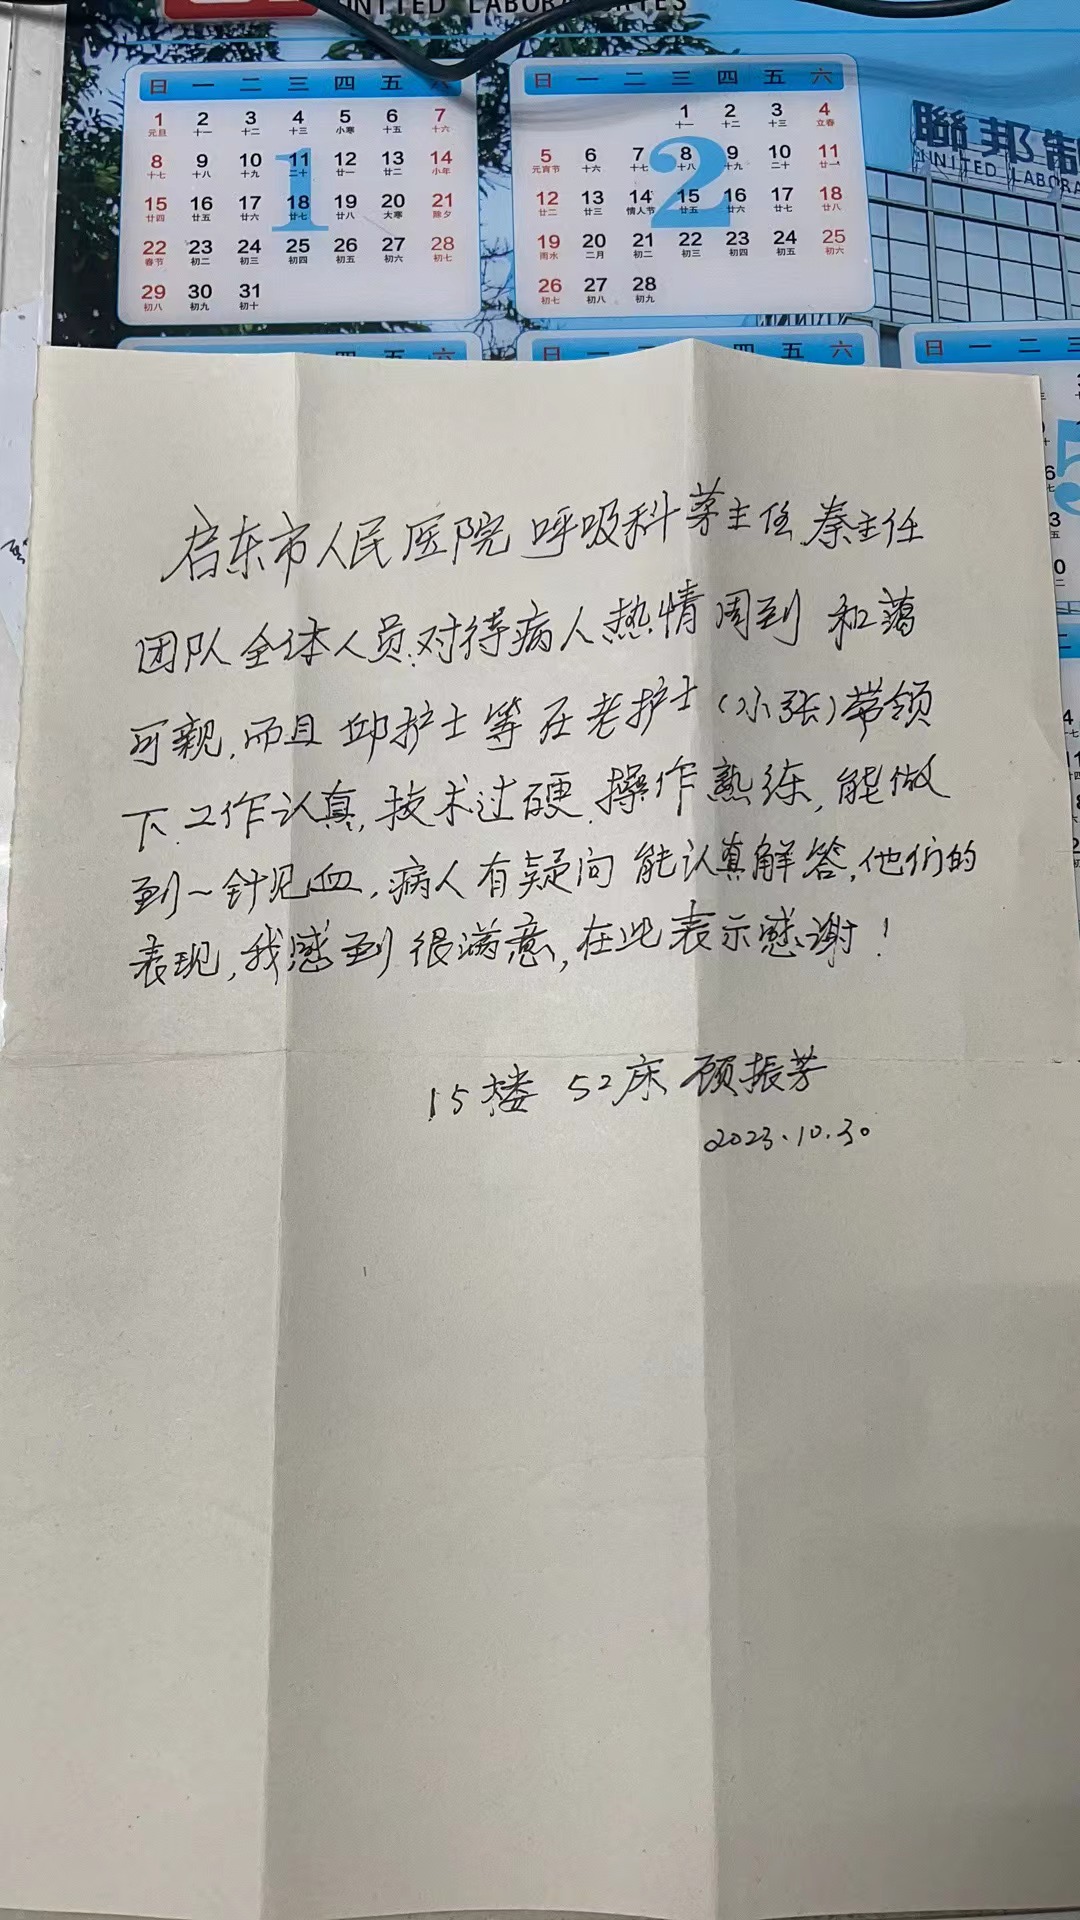 UNITED LABORATORIES
日 一 二 三 四 五 六
1 2 3 4 5 6 7
元旦 十一 十二 十三 小寒 十五 十六
8 9 10 11 12 13 14
十七 十八 十九 二十 廿一 廿二 小年
15 16 17 18 19 20 21
廿四 廿五 廿六 廿七 廿八 大寒 除夕
22 23 24 25 26 27 28
春节 初二 初三 初四 初五 初六 初七
29 30 31
初八 初九 初十
1
日 一 二 三 四 五 六
1 2 3 4
十一 十二 十三 立春
5 6 7 8 9 10 11
元宵节 十六 十七 十八 十九 二十 廿一
12 13 14 15 16 17 18
廿二 廿三 情人节 廿五 廿六 廿七 廿八
19 20 21 22 23 24 25
雨水 二月 初二 初三 初四 初五 初六
26 27 28
初七 初八 初九
2
聯邦制
UNITED LABORA
四 五 六
日 一 二 五 六
日 一 二 三
5
启东市人民医院呼吸科茅主任 秦主任
团队全体人员,对待病人热情周到 和蔼
可亲,而且邱护士等在老护士(小张)带领
下.工作认真,技术过硬.操作熟练,能做
到一针见血,病人有疑问能认真解答,他们的
表现,我感到很满意,在此表示感谢!
15楼 52床 顾振芳
2023.10.30